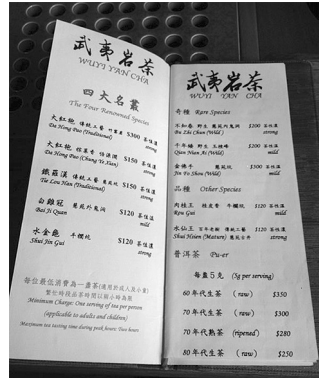 武夷岩茶
WUYI YAN CHA
四大名叢
The Four Renowned Species
大紅袍 傳統工藝 $300 茶性濃
Da Hong Pao (Traditional) strong
大紅袍 $150 茶性濃
Da Hong Pao (Chang Ye Xian) strong
鐵羅漢 傳統工藝 $150 茶性濃
Tie Lou Han (Traditional) strong
白雞冠 $120 茶性淡
Bai Ji Quan mild
水金龜 牛欄坑 $120 茶性濃
Shui Jin Gui strong
每位最低消費為一盅茶(適用於成人及小童)
繁忙時段品茶時間以兩小時為限
Minimum Charge: One serving of tea per person
(applicable to adults and children)
Maximum tea tasting time during peak hours: Two hours
武夷岩茶
WUYI YAN CHA
奇種 Rare Species
不知春 野生 $200 茶性濃
Bu Zhi Chun (Wild) strong
野生 $200 茶性淡
Qian Nian Ai (Wild) mild
金佛手 $300 茶性淡
Jin Fo Shou (Wild) mild
品種 Other Species
肉桂王 牛欄坑 $120 茶性淡
Rou Gui mild
水仙王 百年老樅 傳統工藝 $120 茶性濃
Shui Hsien (Mature) strong
普洱茶 Pu-er
每盅5克 (5g per serving)
60年代生茶 (raw) $350
70年代生茶 (raw) $300
70年代熟茶 (ripened) $280
80年代生茶 (raw) $250